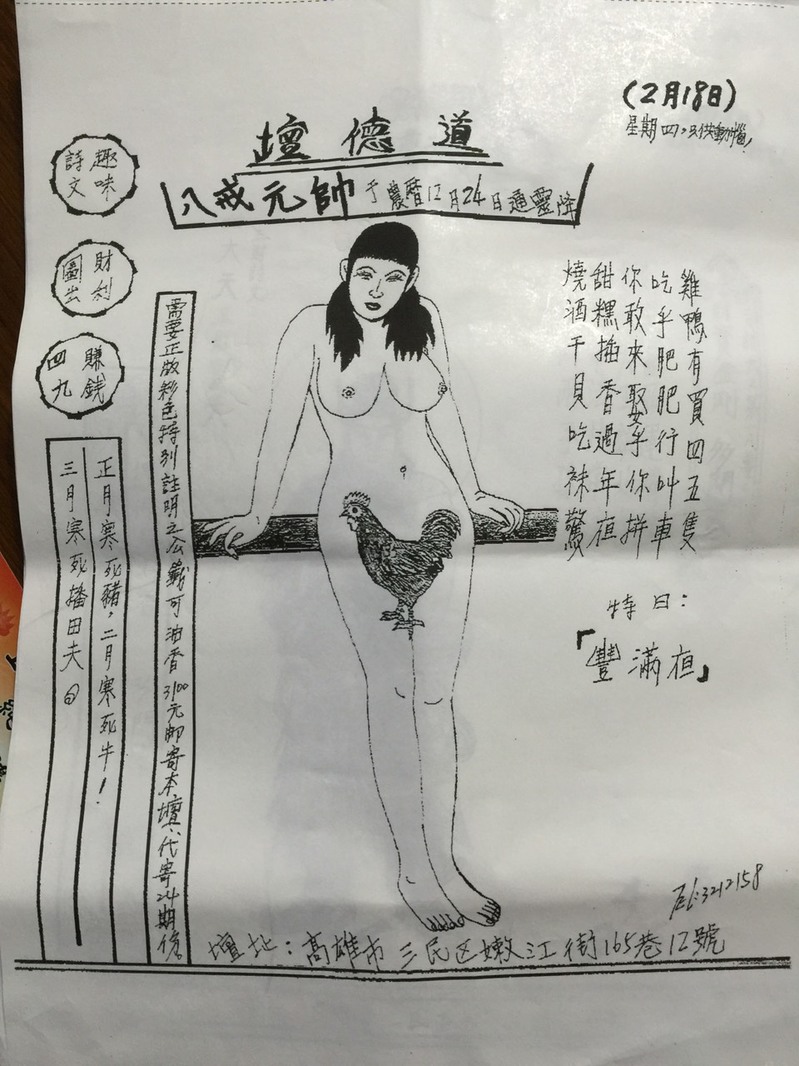 (2月18日)
星期四,
道德壇
八戒元帥于農曆12月24日通靈降
趣味詩文
財利圖出
賺錢四九
雞鴨有買四五隻
吃乎肥肥行叫車
你敢來娶乎你拼
甜粿插香過年夜
燒酒干貝吃袜驚
特曰:
「豐滿夜」
需要正版彩色特別註明之公籤可油香3100元郵寄本壇代寄24期後。
正月寒死豬,二月寒死牛!
三月寒死播田夫。
Tel:3212158
壇地:高雄市三民区嫩江街165巷12號